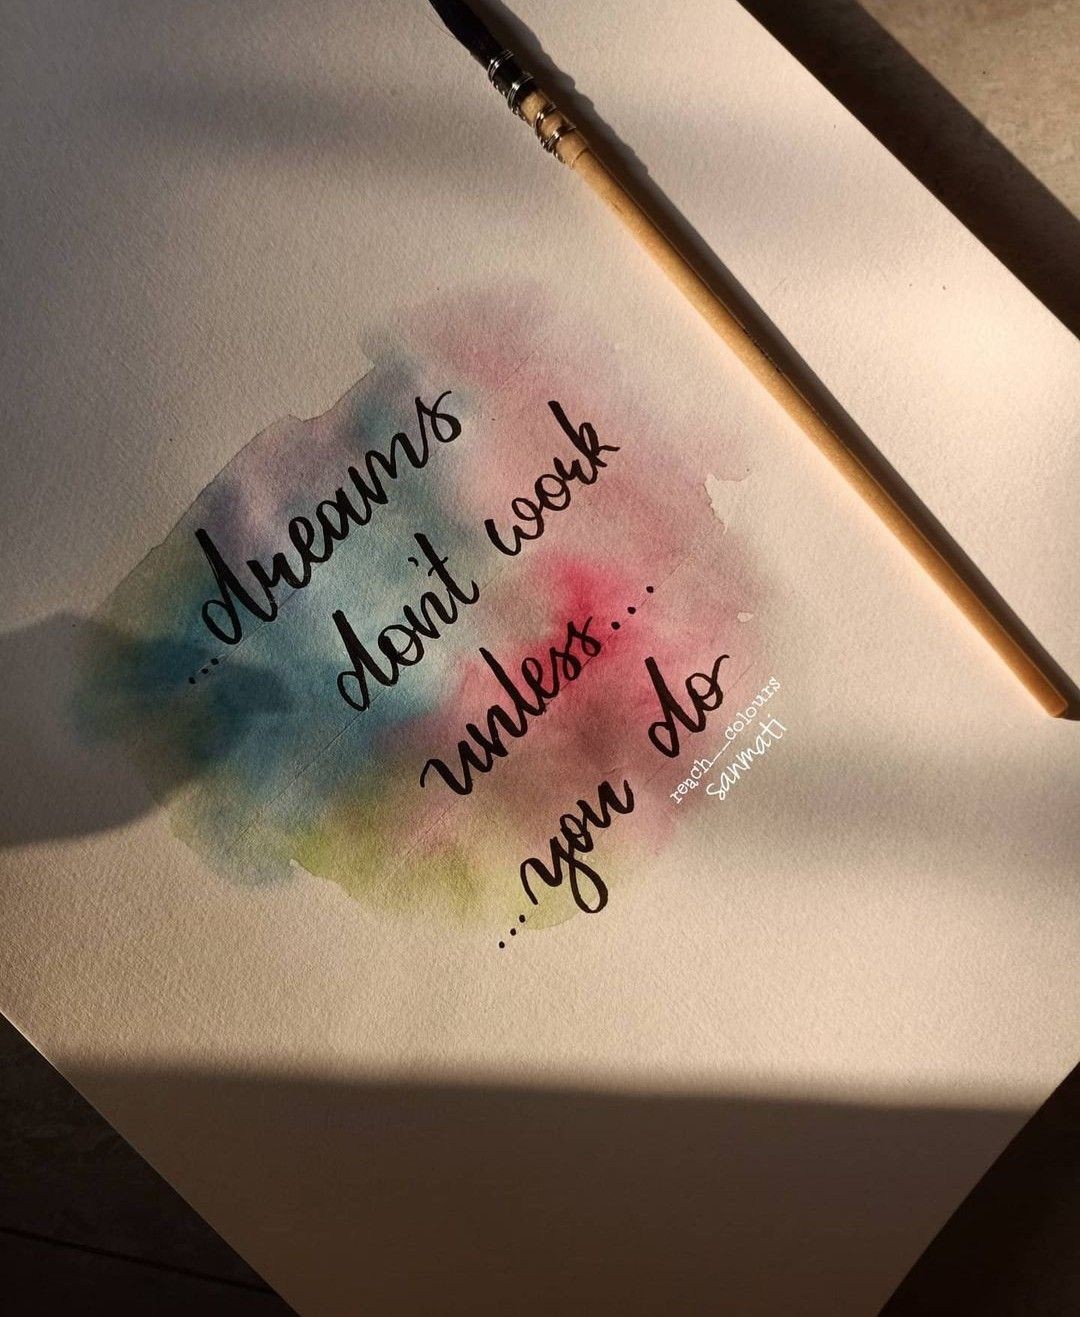 ...dreams
don't work
unless...
...you do
reach__colours
sanmati